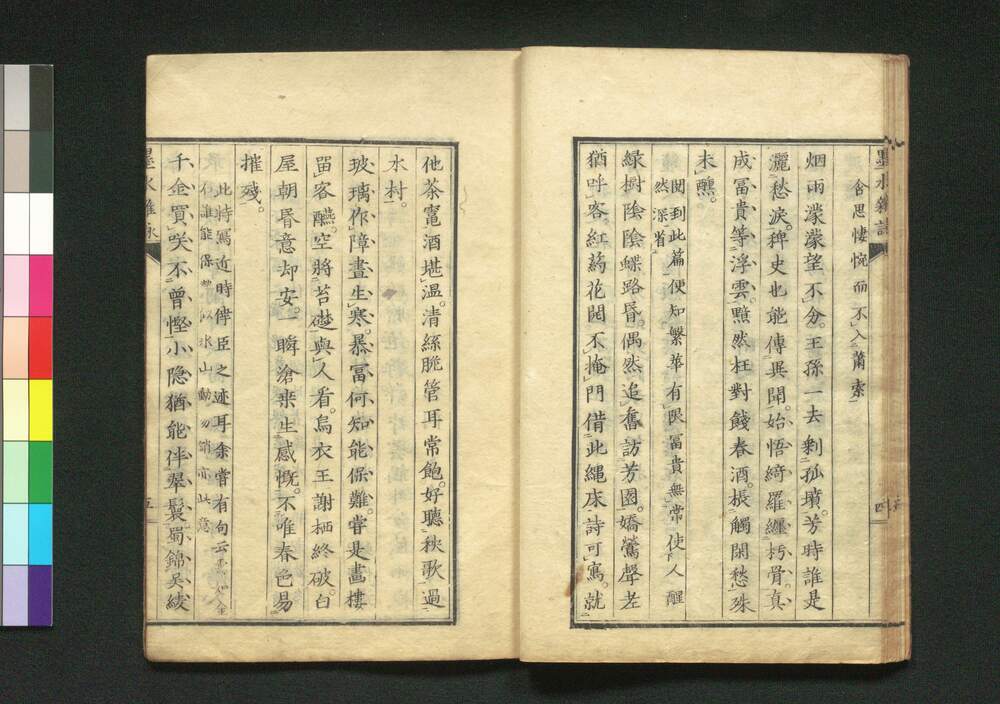 含思悽惋而不入蕭索
烟雨濛濛望不分。王孫一去剩孤墳。芳時誰是
灑愁淚。稗史也能傳異聞。始悟綺羅纏朽骨。真
成冨貴等浮雲。黯然枉對餞春酒。振觸閑愁殊
未醺。
閲到此篇便知繁華有限冨貴無常使人醒
然深省
緑樹陰陰蝶路昏。偶然追舊訪芳園。嬌鶯聲老
猶呼客。紅葯花開不掩門。借此縄床詩可寫。就
他茶竈酒堪温。清絲脆管耳常飽。好聽秧歌過
水村。
玻璃作障晝生寒。暴冨何知能保難。嘗是畫樓
留客醼。空將苔礎與人看。烏衣王謝栖終破。白
屋朝昏意却安。一瞬滄桒生感慨。不唯春色易
摧殘。
此特寫近時倖臣之迹耳余嘗有句云
誰能保 以氷山動易銷亦此意
千金買咲不曾慳。小隐猶能伴翠鬟。蜀錦吳綾
墨水雜詠
五
墨水雜詠
四